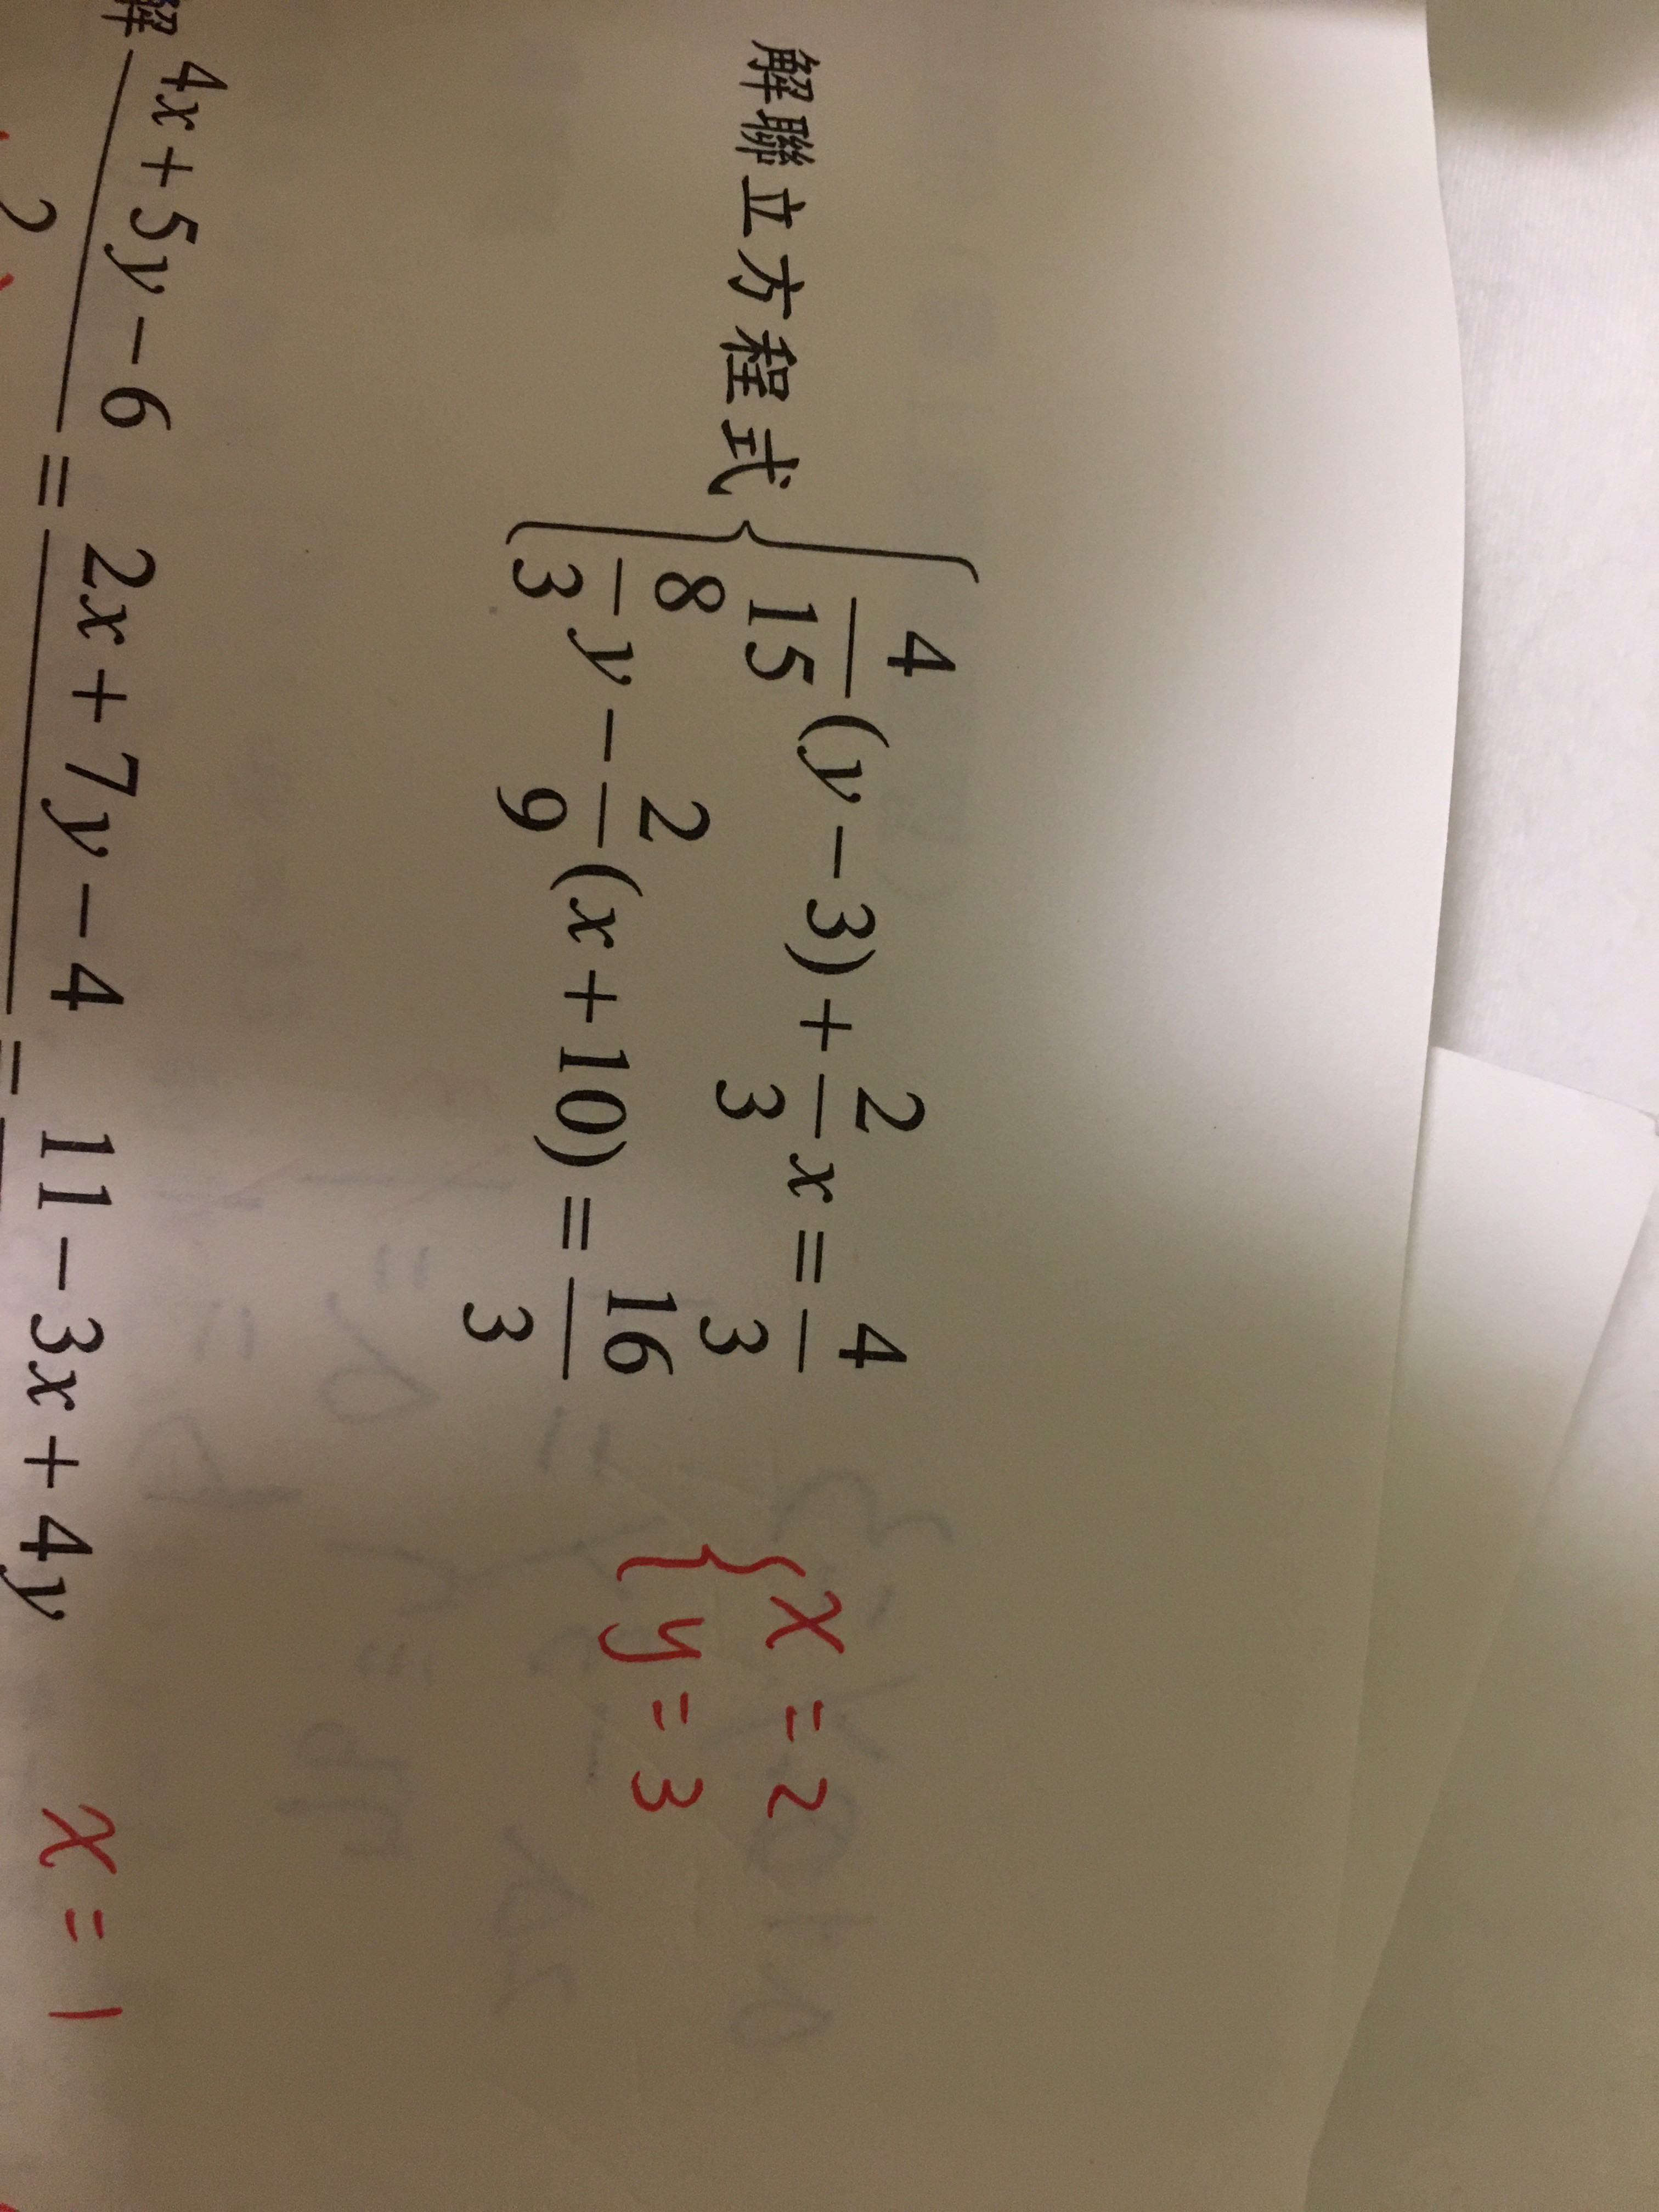 解聯立方程式 { 4/15 (y − 3) + 2/3 x = 4/3
8/3 y − 2/9 (x + 10) = 16/3
{ x = 2
y = 3
解 4x + 5y − 6 / 2 = 2x + 7y − 4 = 11 − 3x + 4y
x = 1